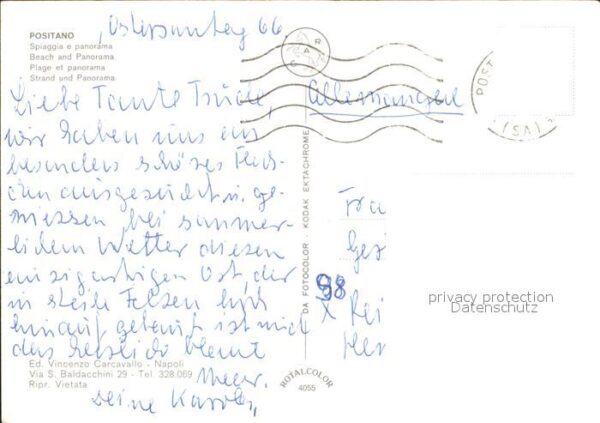 Ostersonntag 66.
POSITANO
Spiaggia e panorama
Beach and Panorama
Plage et panorama
Strand und Panorama
Liebe Tante Trude,
wir haben uns ein
besonders schönes Fleck-
chen ausgesucht u. ge-
niessen bei sommer-
lichem Wetter diesen
einzigartigen Ort, der
in steile Felsen hoch
hinauf gebaut ist und
das herrlich blaue
Meer.
Deine
Ed. Vincenzo Carcavallo - Napoli
Via S. Baldacchini 29 - Tel. 328.069
Ripr. Vietata
DA FOTOCOLOR KODAK EKTACHROME
ROTALCOLOR
4055
POST
(SA)
Fra
98
privacy protection
Datenschutz